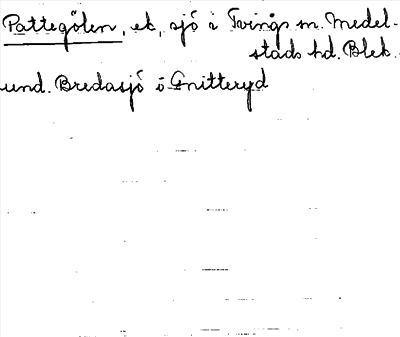 Pattegölen, ek, sjö i Tvings sn. Medel-
stads hd. Blek.
und. Bredasjö o Gnitteryd